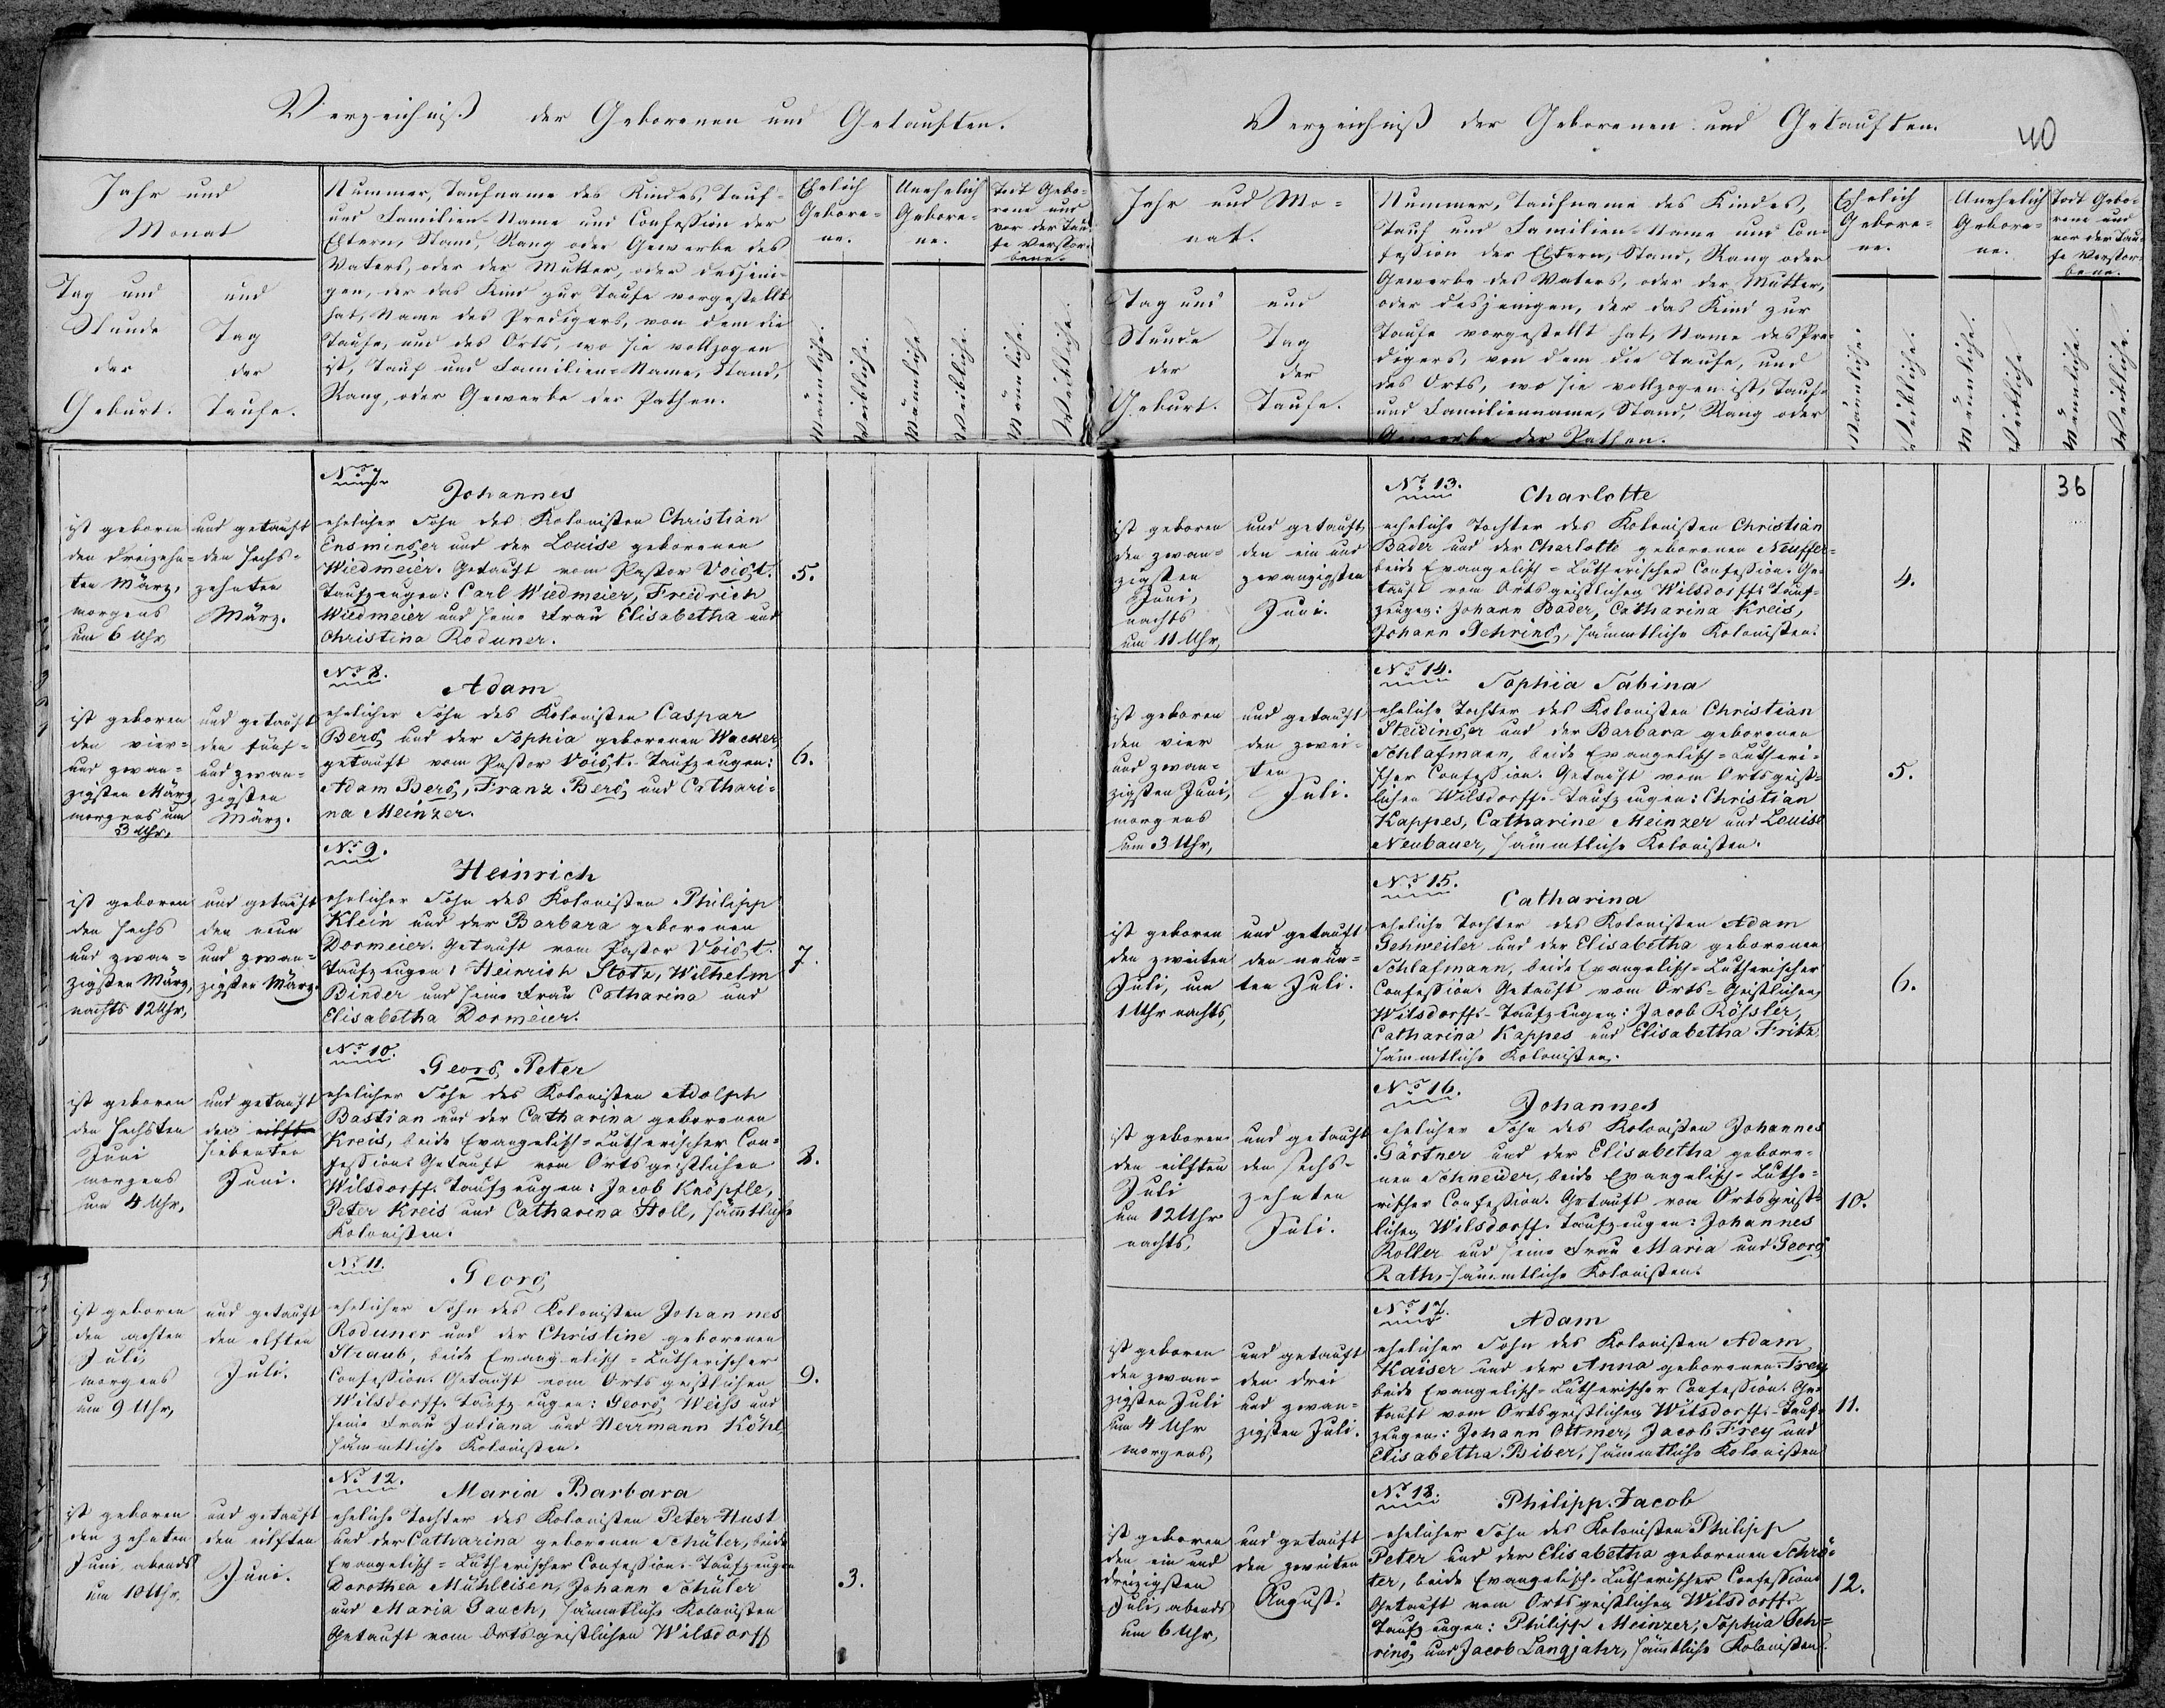 Verzeichniß der Geborenen und Getauften.
Jahr und
Monat
Tag und
Stunde
der
Geburt.
und
Tag
der
Taufe.
Nummer, Taufname des Kindes, Tauf-
und Familien-Name und Confession der
Eltern, Stand, Rang oder Gewerbe des
Vaters, oder der Mutter, oder desjeni-
gen, der das Kind zur Taufe vorgestellt
hat, Name des Predigers, von dem die
Taufe, und des Orts, wo sie vollzogen
ist, Tauf und Familien-Name, Stand,
Rang, oder Gewerbe der Pathen.
Ehelich
Gebore-
ne.
Unehelich
Gebore-
ne.
Todt Gebo-
rene und
vor der Tau-
fe Verstor-
bene.
Männliche.
Weibliche.
Männliche.
Weibliche.
Männliche.
Weibliche.
ist geboren
den dreizehn-
ten März,
morgens
um 6 Uhr,
und getauft
den sechs-
zehnten
März.
No 7.
Johannes
ehelicher Sohn des Kolonisten Christian
Ensminger und der Louise geborenen
Wiedmeier. Getauft vom Pastor Voigt.
Taufzeugen: Carl Wiedmeier, Friedrich
Wiedmeier und seine Frau Elisabetha und
Christina Roduner.
5.
ist geboren
den vier-
und zwan-
zigsten März,
morgens um
3 Uhr,
und getauft
den fünf-
und zwan-
zigsten
März.
No 8.
Adam
ehelicher Sohn des Kolonisten Caspar
Berg und der Sophia geborenen Wacker,
getauft vom Pastor Voigt. Taufzeugen:
Adam Berg, Franz Berg und Cathari-
na Meinzer.
6.
ist geboren
den sechs
und zwan-
zigsten März,
nachts 12 Uhr,
und getauft
den neun
und zwan-
zigsten März.
No 9.
Heinrich
ehelicher Sohn des Kolonisten Philipp
Klein und der Barbara geborenen
Dormeier. Getauft vom Pastor Voigt.
Taufzeugen: Heinrich Stotz, Wilhelm
Binder und seine Frau Catharina und
Elisabetha Dormeier.
7.
ist geboren
den sechsten
Juni
morgens
um 4 Uhr,
und getauft
den eilften
siebenten
Juni.
No 10.
Georg Peter
ehelicher Sohn des Kolonisten Adolph
Bastian und der Catharina geborenen
Kreis, beide Evangelisch-Lutherischer Con-
fession. Getauft vom Ortsgeistlichen
Wilsdorff. Taufzeugen: Jacob Knöpfle,
Peter Kreis und Catharina Stoll, sämtliche
Kolonisten.
8.
ist geboren
den achten
Juli,
morgens
um 9 Uhr,
und getauft
den elften
Juli.
No 11.
Georg
ehelicher Sohn des Kolonisten Johannes
Roduner und der Christine geborenen
Straub, beide Evangelisch-Lutherischer
Confession. Getauft vom Ortsgeistlichen
Wilsdorff. Taufzeugen: Georg Weiss und
seine Frau Juliana und Herrmann Köhl,
sämmtliche Kolonisten.
9.
ist geboren
den zehnten
Juni, abends
um 10 Uhr,
und getauft
den eilften
Juni.
No 12.
Maria Barbara
eheliche Tochter des Kolonisten Peter Hust
und der Catharina geborenen Schüler, beide
Evangelisch-Lutherischer Confession. Taufzeugen
Dorothea Mühleisen, Johann Schüler
und Maria Gauch, sämmtliche Kolonisten
Getauft vom Ortsgeistlichen Wilsdorff
3.
Verzeichniß der Geborenen und Getauften.
40
Jahr und Mo-
nat.
Tag und
Stunde
der
Geburt.
und
Tag
der
Taufe.
Nummer, Taufname des Kindes,
Tauf und Familien-Name und Con-
fession der Eltern, Stand, Rang oder
Gewerbe des Vaters, oder der Mutter,
oder desjenigen, der das Kind zur
Taufe vorgestellt hat, Name des Pre-
digers, von dem die Taufe, und
des Orts, wo sie vollzogen ist, Tauf-
und Familienname, Stand, Rang oder
Gewerbe der Pathen.
Ehelich
Gebore-
ne.
Unehelich
Gebore-
ne.
Todt Gebo-
rene und
vor der Tau-
fe Verstor-
bene.
Männliche.
Weibliche.
Männliche.
Weibliche.
Männliche.
Weibliche.
36
ist geboren
den zwan-
zigsten
Juni,
nachts
um 11 Uhr,
und getauft
den ein und
zwanzigsten
Juni.
No 13.
Charlotte
eheliche Tochter des Kolonisten Christian
Bader und der Charlotte geborenen Neuffer-
beide Evangelisch-Lutherischer Confession. Ge-
tauft vom Ortsgeistlichen Wilsdorff. Tauf-
zeugen: Johann Bader, Catharina Kreis,
Johann Gehring, sämmtliche Kolonisten.
4.
ist geboren
den vier
und zwan-
zigsten Juni,
morgens
um 3 Uhr,
und getauft
den zwei-
ten
Juli.
No 14.
Sophia Sabina
eheliche Tochter des Kolonisten Christian
Steidinger und der Barbara geborenen
Schlafmann, beide Evangelisch-Lutheri-
scher Confession. Getauft vom Ortsgeist-
lichen Wilsdorff. Taufzeugen: Christian
Kappes, Catharine Meinzer und Louise
Neubauer, sämmtliche Kolonisten.
5.
ist geboren
den zweiten
Juli, um
1 Uhr nachts,
und getauft
den neun-
ten Juli.
No 15.
Catharina
eheliche Tochter des Kolonisten Adam
Gehweiler und der Elisabetha geborenen
Schlafmann, beide Evangelisch-Lutherischer
Confession. Getauft vom Orts-Geistlichen
Wilsdorff. Taufzeugen: Jacob Rössler,
Catharina Kappes und Elisabetha Fritz,
sämmtliche Kolonisten.
6.
ist geboren
den eilften
Juli
um 12 Uhr
nachts,
und getauft
den sechs-
zehnten
Juli.
No 16.
Johannes
ehelicher Sohn des Kolonisten Johannes
Gärtner und der Elisabetha gebore-
nen Schneider, beide Evangelisch-Luthe-
rischer Confession. Getauft vom Ortsgeist-
lichen Wilsdorff. Taufzeugen: Johannes
Roller und seine Frau Maria und Georg
Rath, sämmtliche Kolonisten.
10.
ist geboren
den zwan-
zigsten Juli
um 4 Uhr
morgens,
und getauft
den drei
und zwan-
zigsten Juli.
No 17.
Adam
ehelicher Sohn des Kolonisten Adam
Kaiser und der Anna geborenen Frey
beide Evangelisch-Lutherischer Confession. Ge-
tauft vom Ortsgeistlichen Wilsdorff. Tauf-
zeugen: Johann Ottmer, Jacob Frey und
Elisabetha Biber, sämmtliche Kolonisten
11.
ist geboren
den ein und
dreizigsten
Juli, abends
um 6 Uhr,
und getauft
den zweiten
August.
No 18.
Philipp Jacob
ehelicher Sohn des Kolonisten Philipp
Peter und der Elisabetha geborenen Schrö-
ter, beide Evangelisch-Lutherischer Confession
Getauft vom Ortsgeistlichen Wilsdorff.
Taufzeugen: Philipp Meinzer, Sophia Geh-
ring und Jacob Langjahr, sämtliche Kolonisten.
12.